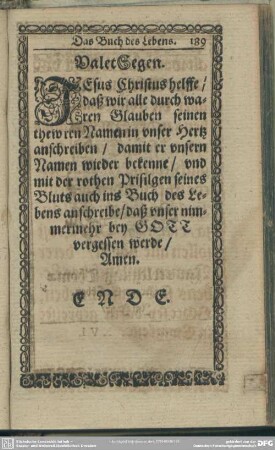 Das Buch des Lebens. 189
Valet Segen.
JEsus Christus helffe /
daß wir alle durch wa-
ren Glauben seinen
thewren Namen in vnser Hertz
anschreiben / damit er vnsern
Namen wieder bekenne / vnd
mit der rothen Prisilgen seines
Bluts auch ins Buch des Le-
bens anschreibe / daß vnser nim-
mermehr bey GOTT
vergessen werde /
Amen.
E N D E.